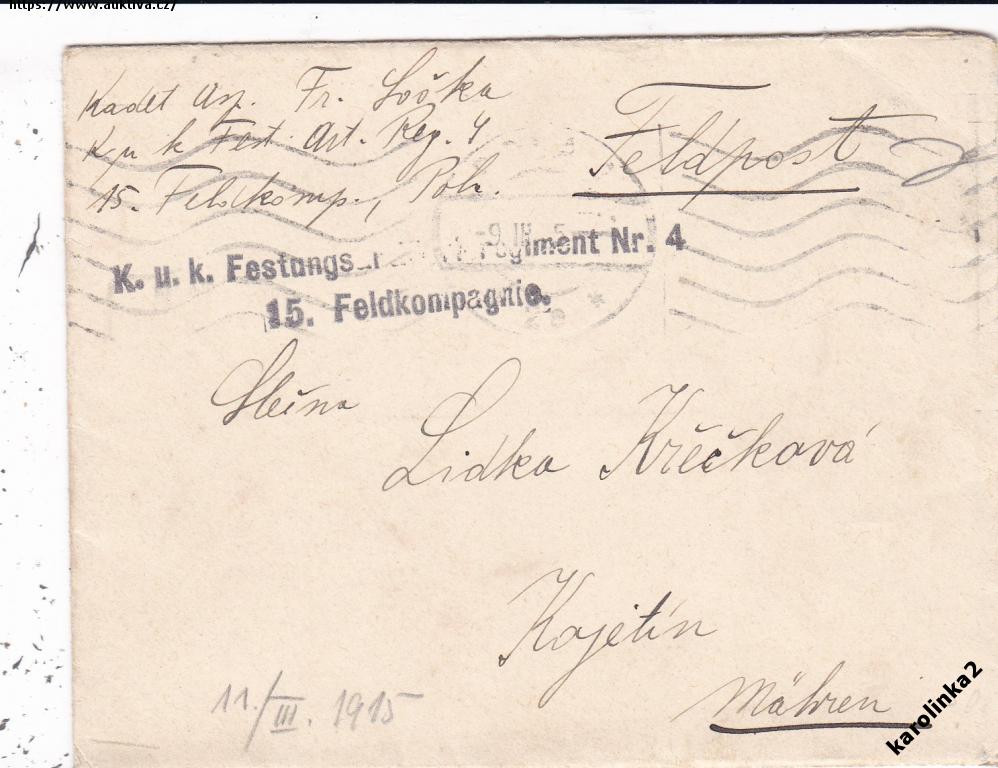 https://www.auktiva.cz/
Kadet Asp. Fr. Sočka
K u k Fest. Art. Reg. 4
15. Feldkomp., Pola.
Feldpost
K. u. k. Festungs regiment Nr. 4
15. Feldkompagnie.
Slečna
Lidka Křečková
Kojetín
Mähren
11./III. 1915
karolinka2